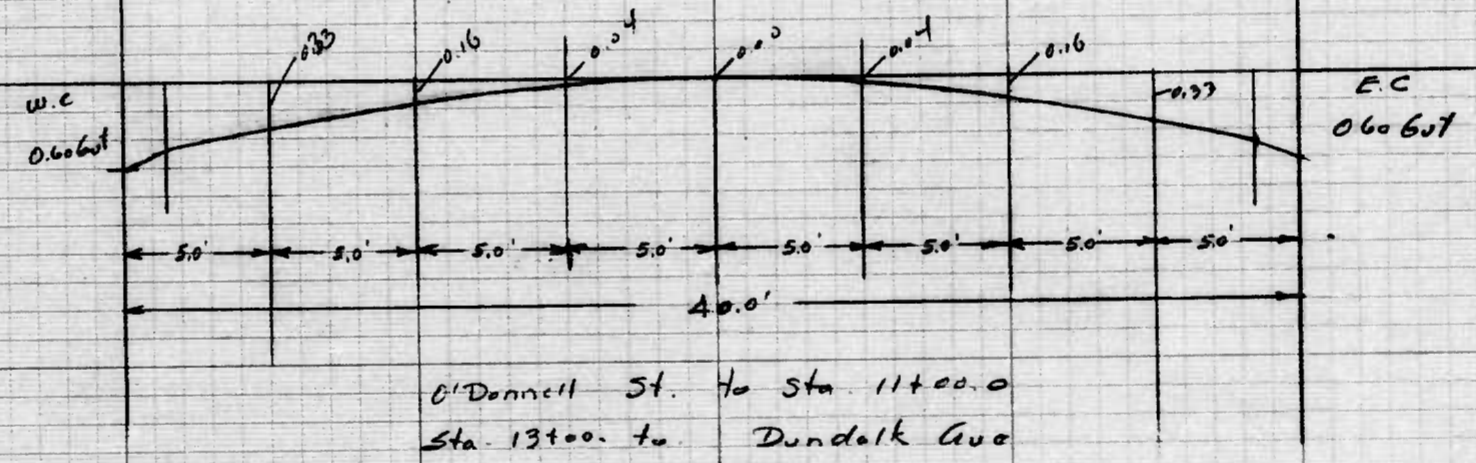 0.33 0.16 0.04 0.00 0.04 0.16 0.33
W.C E.C
0.60 Gut 0 60 Gut
5.0' 5.0' 5.0' 5.0' 5.0' 5.0' 5.0' 5.0'
40.0'
O'Donnell St. to Sta. 11+00.0
Sta. 13+00. to Dundalk Ave